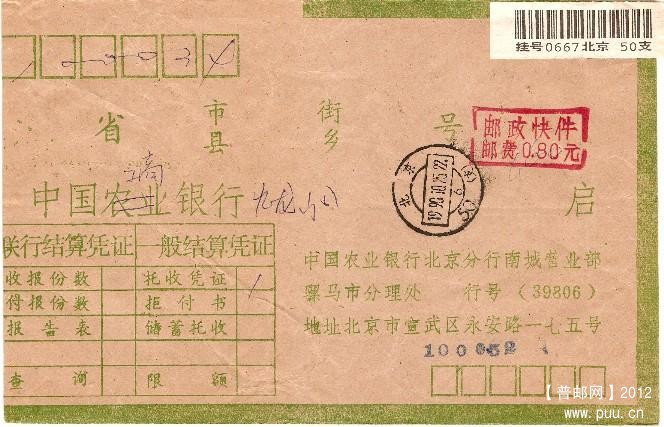 挂号0667北京 50支
100034
省 市县 街乡 号
邮政快件
邮费0.80元
中国农业银行 九龙山 启
北京
1990.10.25.22
联行结算凭证 一般结算凭证
收报份数 托收凭证
得报份数 拒付书
报告表 储蓄托收
查询 限额
中国农业银行北京分行南城营业部
骡马市分理处 行号（39806）
地址北京市宣武区永安路一七五号
100052
【普邮网】2012
www.puu.cn